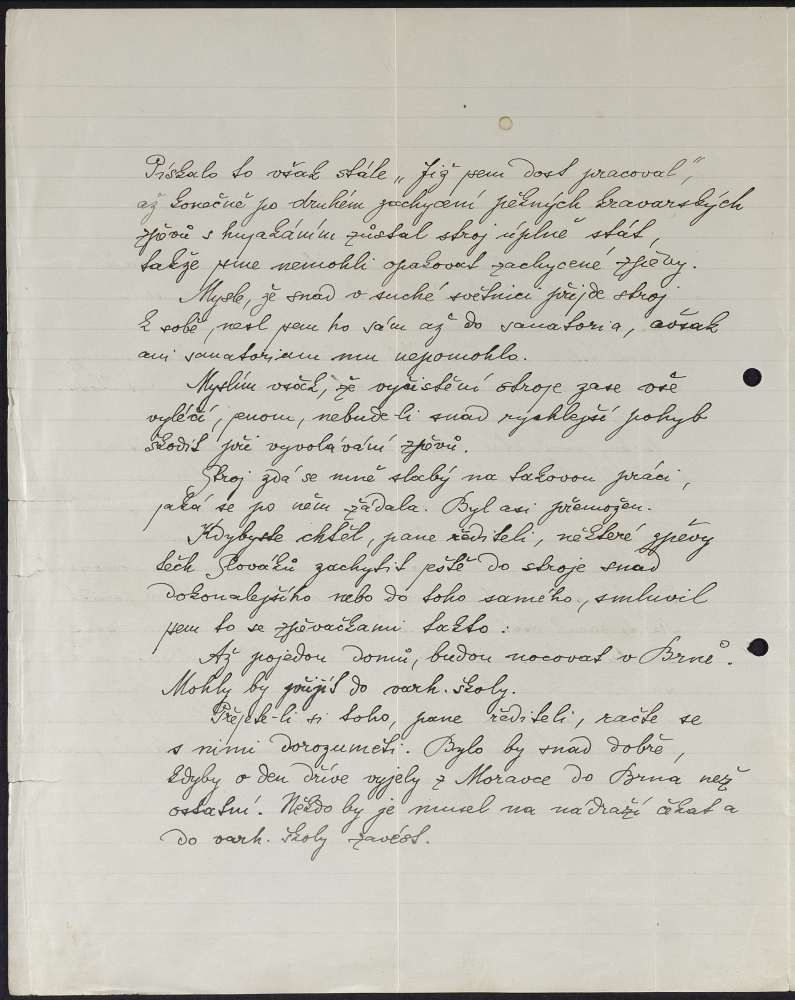 Pískalo to však stále „Již jsem dost pracoval",
až konečně po druhém zachycení pěkných kravarských
zpěvů s hujakáním zůstal stroj úplně stát,
takže jsme nemohli opakovat zachycené zpěvy.
Mysle, že snad v suché světnici přijde stroj
k sobě, nesl jsem ho sám až do sanatoria, avšak
ani sanatorium mu nepomohlo.
Myslím však, že vyčistění stroje zase vše
vyléčí, jenom, nebude-li snad rychlejší pohyb
škodit při vyvolávání zpěvů.
Stroj zdá se mně slabý na takovou práci,
jaká se po něm žádala. Byl asi přemožen.
Kdybyste chtěl, pane řediteli, některé zpěvy
těch Slováků zachytit ještě do stroje snad
dokonalejšího nebo do toho samého, smluvil
jsem to se zpěvačkami takto:
Až pojedou domů, budou nocovat v Brně.
Mohly by přijít do varh. školy.
Přejete-li si toho, pane řediteli, račte se
s nimi dorozuměti. Bylo by snad dobře,
kdyby o den dříve vyjely z Moravce do Brna než
ostatní. Někdo by je musel na nádraží čekat a
do varh. školy zavést.